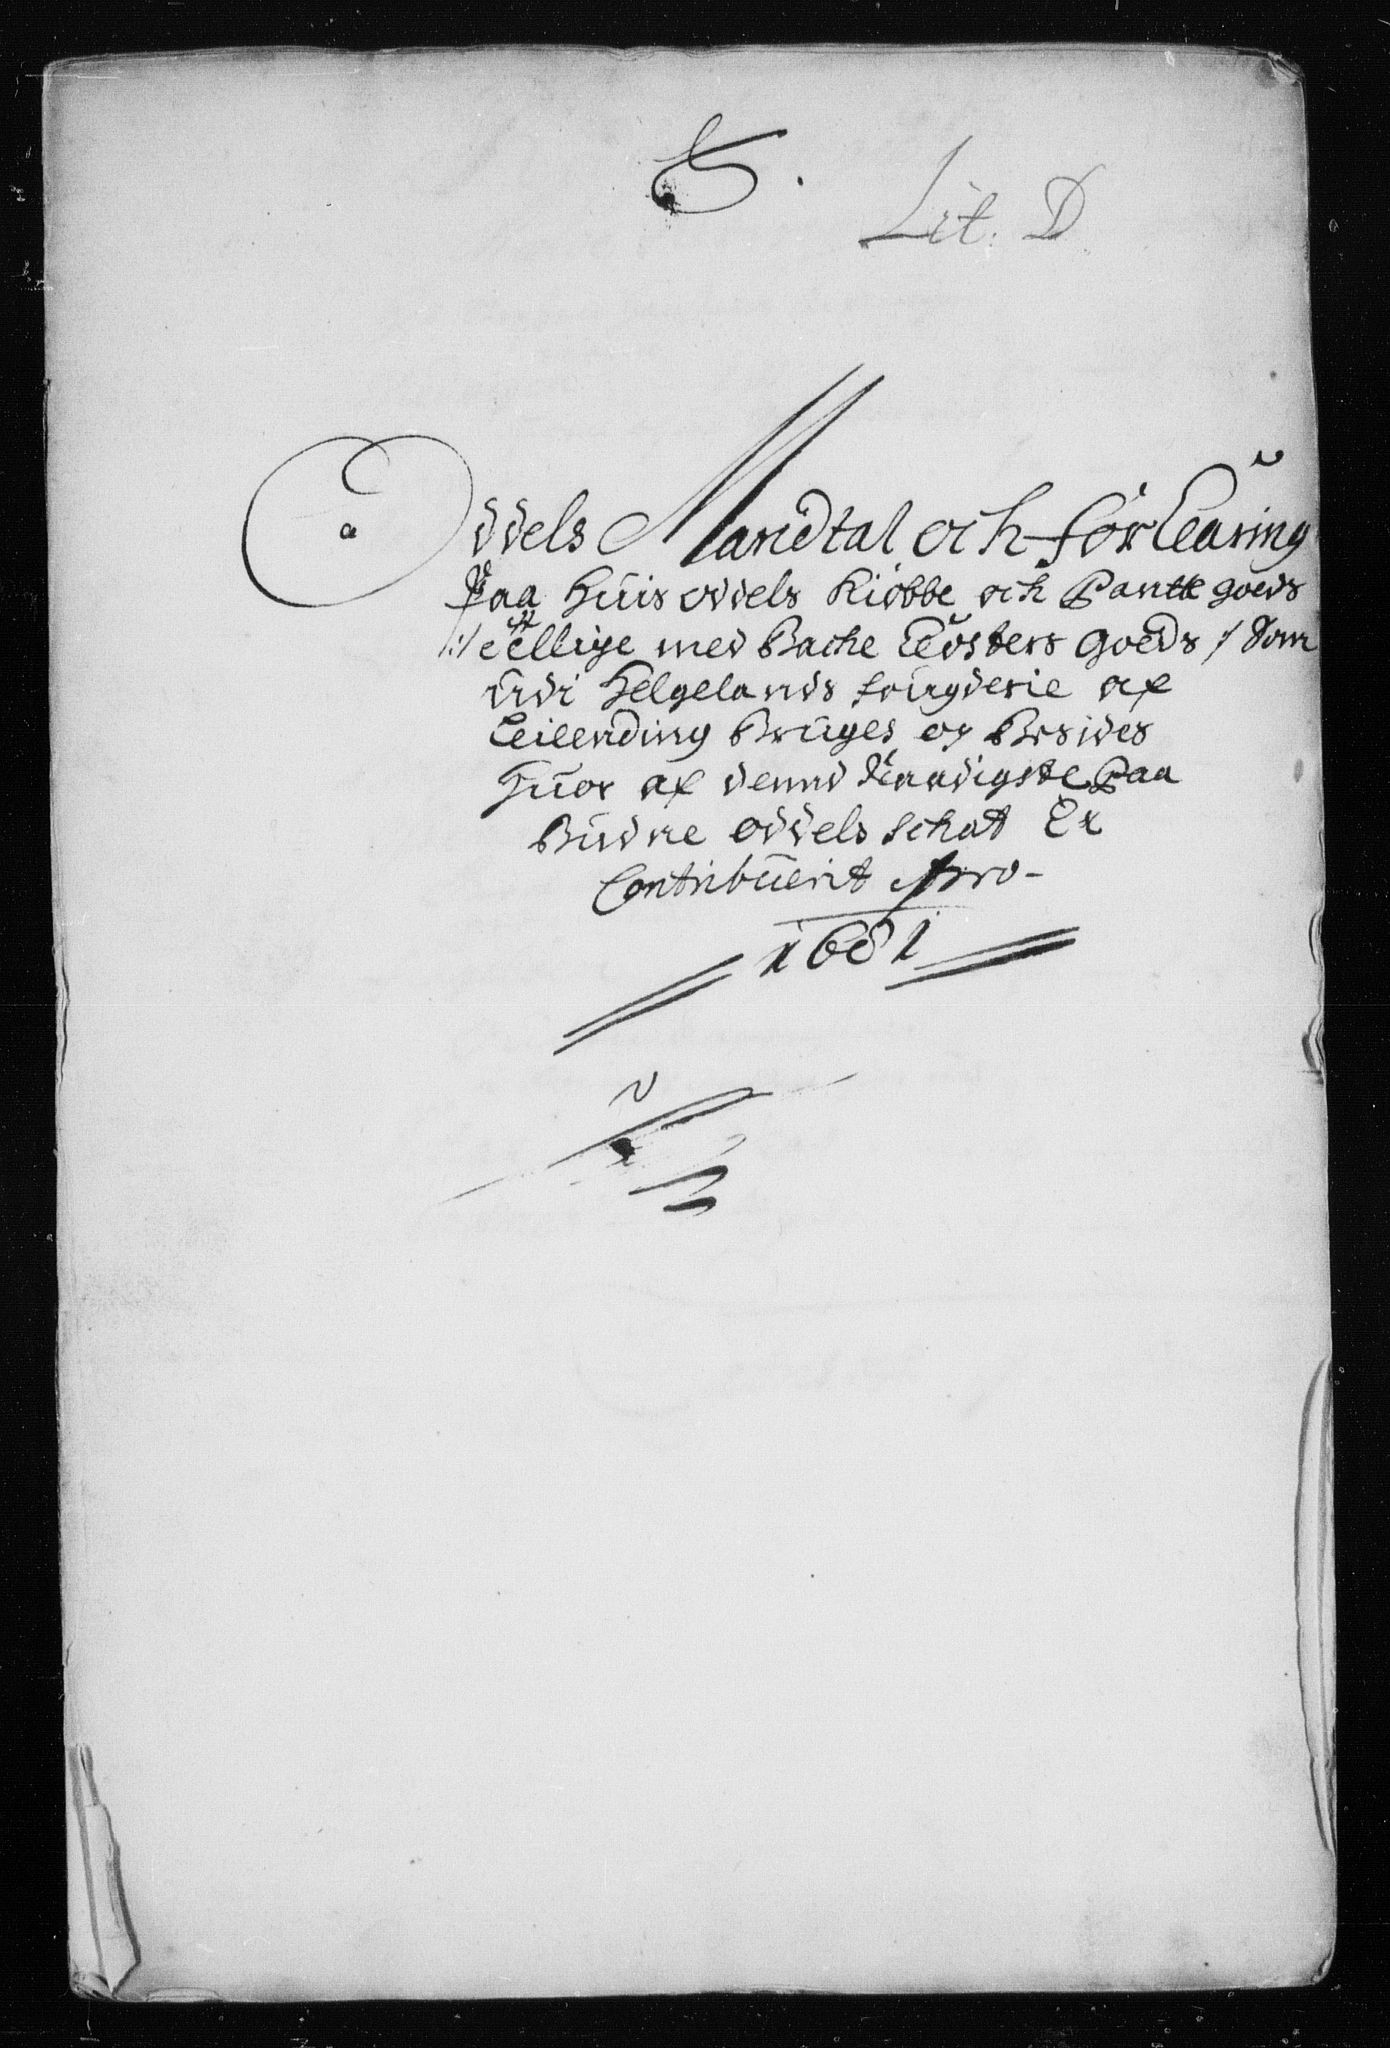 Lit. D
Oddels Mandtal och forklaring
Paa Huis oddels Kiøbbe och Pantte goeds
/:/ sellige med Bache Closters Goeds / Som
udi Helgelands fougderie af
Leilending Bruges og Besides
Huor af denne Naadigste Paa
Budne oddels schat Er
Contribuerit Pro-
1681